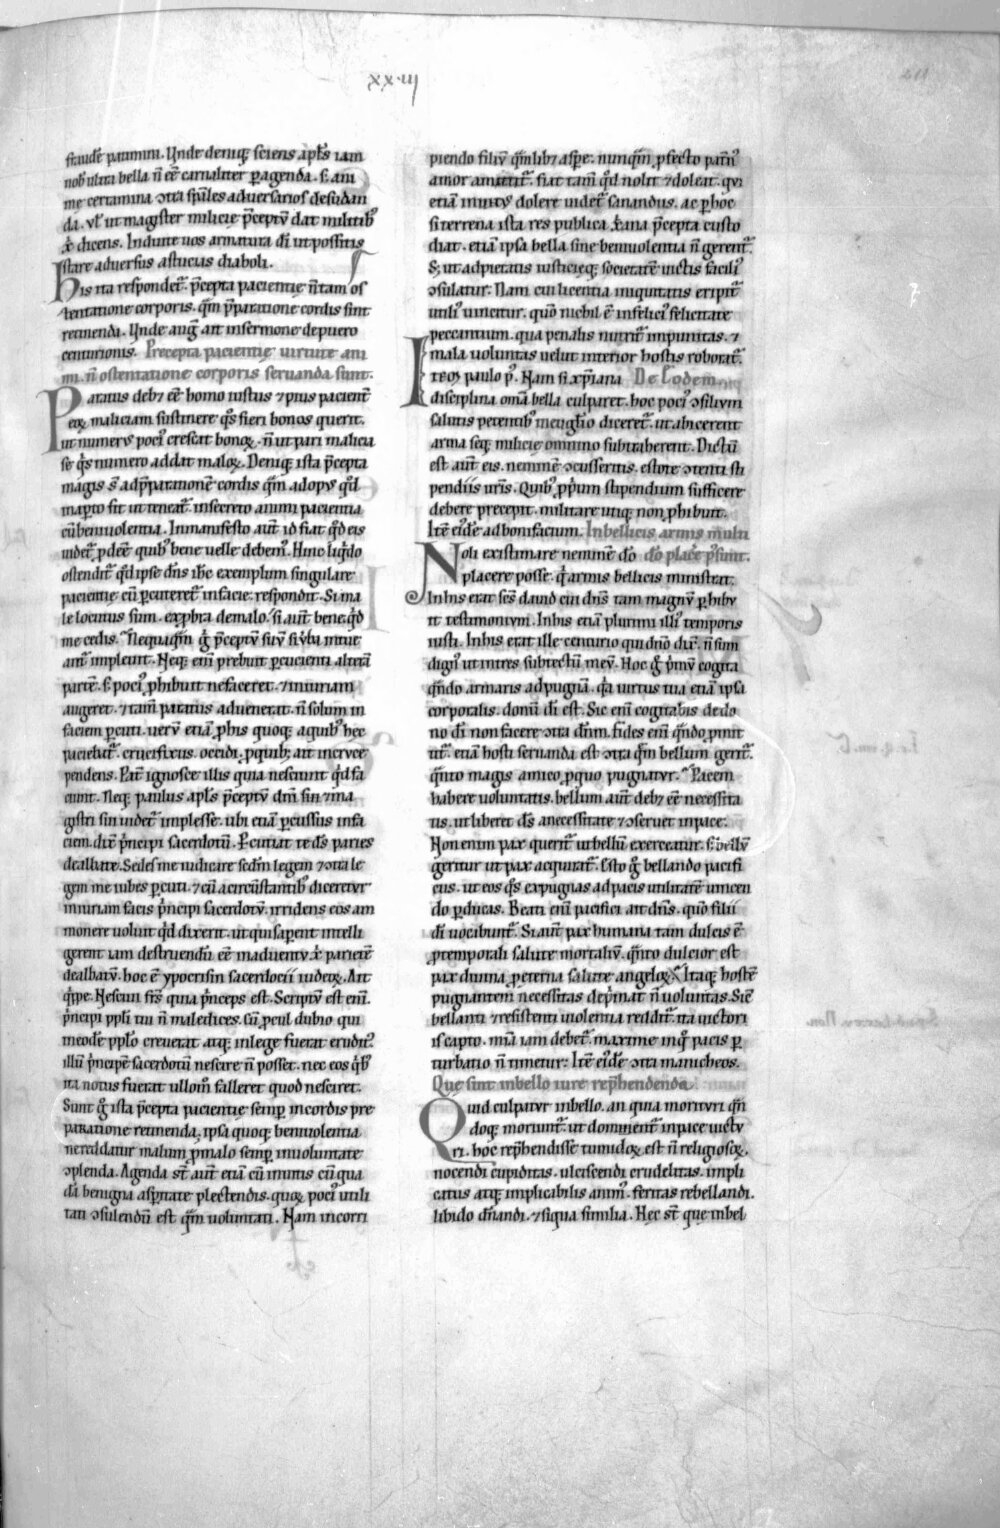 xx·iij
fraudē patimini. Unde deniq; sciens apl's iam
nob' ultra bella n̄ eē carnaliter peragenda. s; ani
mę certamina ɔtra sp̄ales adversarios desudan
da. vl' ut magister milicię p̄ceptū dat militib'
x̄p̄i dicens. Induite vos armatura dī ut possitis
stare adversus astucias diaboli.
His ita respondet̄. p̄cepta pacientię n̄ tam os
tentatione corporis. q̄m p̄paratione cordis sint
retinenda. Unde aug̃ ait in sermone de puero
centurionis. Precepta pacientię virtute ani
mi. n̄ ostentatione corporis servanda sunt.
Paratus deb; eē homo iustus ⁊ pius pacient̄
eoꝝ maliciam sustinere q̄s fieri bonos querit.
ut numerus poci' crescat bonoꝝ. n̄ ut pari malicia
se q̄s numero addat maloꝝ. Deniq; ista p̄cepta
magis s̄t ad p̄parationē cordis q̄m ad opus q̄d
in apto fit ut teneat̄. in secreto animi paciencia
cū benivolentia. In manifesto aut̄ id fiat q̄d eis
videt̄ p̄deē quib' bene velle debem'. Hinc liq̄do
ostendit̄ q̄d ipse dn̄s ih̄c exemplum singulare
pacientię cū p̄cuteret̄ in facie. respondit. Si ma
le locutus sum. exp̄bra de malo. si aut̄ bene. q̄d
me cedis. Nequaq̄m g̊ p̄ceptū suū si v̄ba intue
ant̄ implevit. Neq; enī prebuit p̄cucienti alterā
partē. s; poci' ꝓhibuit ne faceret. ⁊ iniuriam
augeret. ⁊ tam̄ paratus advenerat. n̄ solum in
faciem p̄cuti. verū etiā ꝓ his quoq; a quib' hec
paciebat̄. crucifixus. occidi. ꝓ quib; ait in cruce
pendens. Pat̄ ignosce illis quia nesciunt q̄d fa
ciunt. Neq; paulus apl's p̄ceptū dn̄i sui ⁊ ma
gistri sui videt̄ implesse. ubi etiā p̄cussus in fa
ciem. dix̄ p̄ncipi sacerdotū. P̄cutiat te d̄s paries
dealbate. Sedes me iudicare sed̄m legem ⁊ ɔtra le
gem me iubes p̄cuti. ⁊ cū a circūstantib' diceretur
iniuriam facis p̄ncipi sacerdotū. irridens eos am
monere voluit q̄d dixerit. ut qui saperent intelli
gerent iam destruendū eē adventu x̄p̄i parietē
dealbatū. hoc ē ypocrisin sacerdocii iudeoꝝ. Ait
q̄ippe. Nescivi frs̄ quia p̄nceps est. Scriptū est enī.
p̄ncipi ppl̄i tui n̄ maledices. cū p̄cul dubio qui
in eodē ppl̄o creverat atq; in lege fuerat erudit'
illū p̄ncipē sacerdotū nescire n̄ posset. nec eos q̄b'
ita notus fuerat ullom̄ falleret quod nesciret.
Sunt g̊ ista p̄cepta pacientię semp̄ in cordis pre
paratione retinenda. ipsa quoq; benivolentia
ne reddatur malum ꝓ malo semp̄ in voluntate
ɔplenda. Agenda s̄t aut̄ etiā cū invitis cū qua
dā benigna asp̄itate plectendis. quoꝝ poci' utili
tati ɔsulendū est q̄m voluntati. Nam in corri
piendo filiū q̄mlib; aspe. nunq̄m ꝓfecto patn'
amor amittit̄. fiat tam̄ q̄d nolit ⁊ doleat. qui
etiā invitus dolere videt̄ sanandus. ac p̄ hoc
si terrena ista res publica x̄p̄iana p̄cepta custo
diat. etiā ipsa bella sine benivolentia n̄ gerent̄.
S; ut ad pietatis iusticieq; societatē victis facili'
ɔsulatur. Nam cui licentia iniquitatis eripit̄
utili' vincitur. quō nichil ē infelici' felicitate
peccantium. qua penalis nutrit̄ impunitas. ⁊
mala voluntas velut interior hostis roborat̄.
Iteꝝ paulo p'. Nam si xp̄iana De Eodem.
disciplina om̄a bella culparet. hoc poci' ɔsilium
salutis petentib' in evḡlio diceret̄. ut abicerent
arma seq; milicie omnino subtraherent. Dictū
est aut̄ eis. neminē ɔcusseritis. estote ɔtenti sti
pendiis vr̄is. Quib' ꝓprium stipendium sufficere
debere precepit. militare utiq; non ꝓhibuit.
Itē ei'dē ad bonifacium. In bellicis armis multi
Noli existimare neminē dō dō placē p̄sunt.
placere posse. q̄ armis bellicis ministrat.
In his erat scs̄ david cui dn̄s tam magnū perhibu
it testimonium. In his etiā plurimi illi' temporis
iusti. In his erat ille centurio qui dn̄o dix̄. n̄ sum
dign' ut intres sub tectū meū. Hoc g̊ p̄mū cogita
q̄ndo armaris ad pugnā. q̄a virtus tua etiā ipsa
corporalis. donū dī est. Sic enī cogitabis de do
no dī non facere ɔtra dn̄m. fides enī q̄ndo ꝓmit
tit̄. etiā hosti servanda est ɔtra q̄m bellum gerit̄.
q̄nto magis amico ꝓ quo pugnatur. Pacem
habere voluntatis. bellum aut̄ deb; eē necessita
tis. ut liberet d̄s a necessitate ⁊ ɔservet in pace.
Non enim pax querit̄ ut bellū exerceatur. s; bellū
geritur ut pax acquirat̄. Esto g̊ bellando pacifi
cus. ut eos q̄s expugnas ad pacis utilitatē vincen
do p̄ducas. Beati enī pacifici ait dn̄s. quō filii
dī vocabunt̄. Si aut̄ pax humana tam dulcis ē
ꝓ temporali salute mortaliū. q̄nto dulcior est
pax divina ꝓ eterna salute angeloꝝ. Itaq; hostē
pugnantem necessitas dep̄mat n̄ voluntas. Sic̄
bellanti ⁊ resistenti violentia reddit̄. ita victori
is capto. mīa iam debet̄. maxime in q̊ pacis p̄
turbatio n̄ timetur: Itē ei'dē ɔtra manicheos.
Que sint in bello iure rep̄hendenda.
Quid culpatur in bello. an quia morituri q̄n
doq; moriunt̄. ut dominent̄ in pace victu
ri. hoc rep̄hendisse timidoꝝ est n̄ religiosoꝝ.
nocendi cupiditas. ulciscendi crudelitas. impli
catus atq; implicabilis anim'. feritas rebellandi.
libido dn̄andi. ⁊ siqua similia. Hęc s̄t que in bel